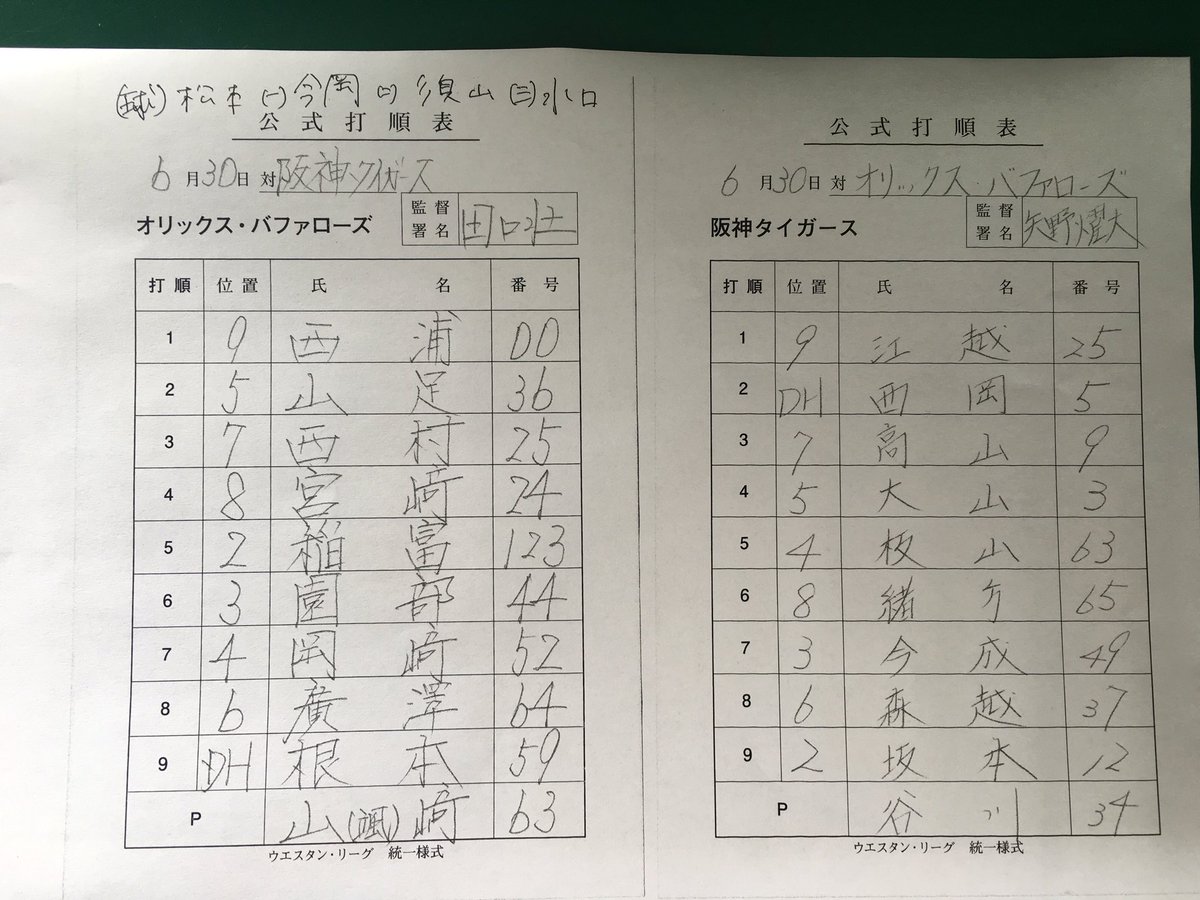 (球) 松本 (一) 今岡 (二) 須山 (三) 水口
公式打順表
6月30日 対 阪神タイガース
オリックス・バファローズ 監督署名 田口壮
打順 位置 氏名 番号
1 9 西浦 00
2 5 山足 36
3 7 西村 25
4 8 宮﨑 24
5 2 稲富 123
6 3 園部 44
7 4 岡﨑 52
8 6 廣澤 64
9 DH 根本 59
P 山(颯)﨑 63
ウエスタン・リーグ 統一様式
公式打順表
6月30日 対 オリックス・バファローズ
阪神タイガース 監督署名 矢野燿大
打順 位置 氏名 番号
1 9 江越 25
2 DH 西岡 5
3 7 高山 9
4 5 大山 3
5 4 板山 63
6 8 緒方 65
7 3 今成 49
8 6 森越 37
9 2 坂本 12
P 谷川 34
ウエスタン・リーグ 統一様式